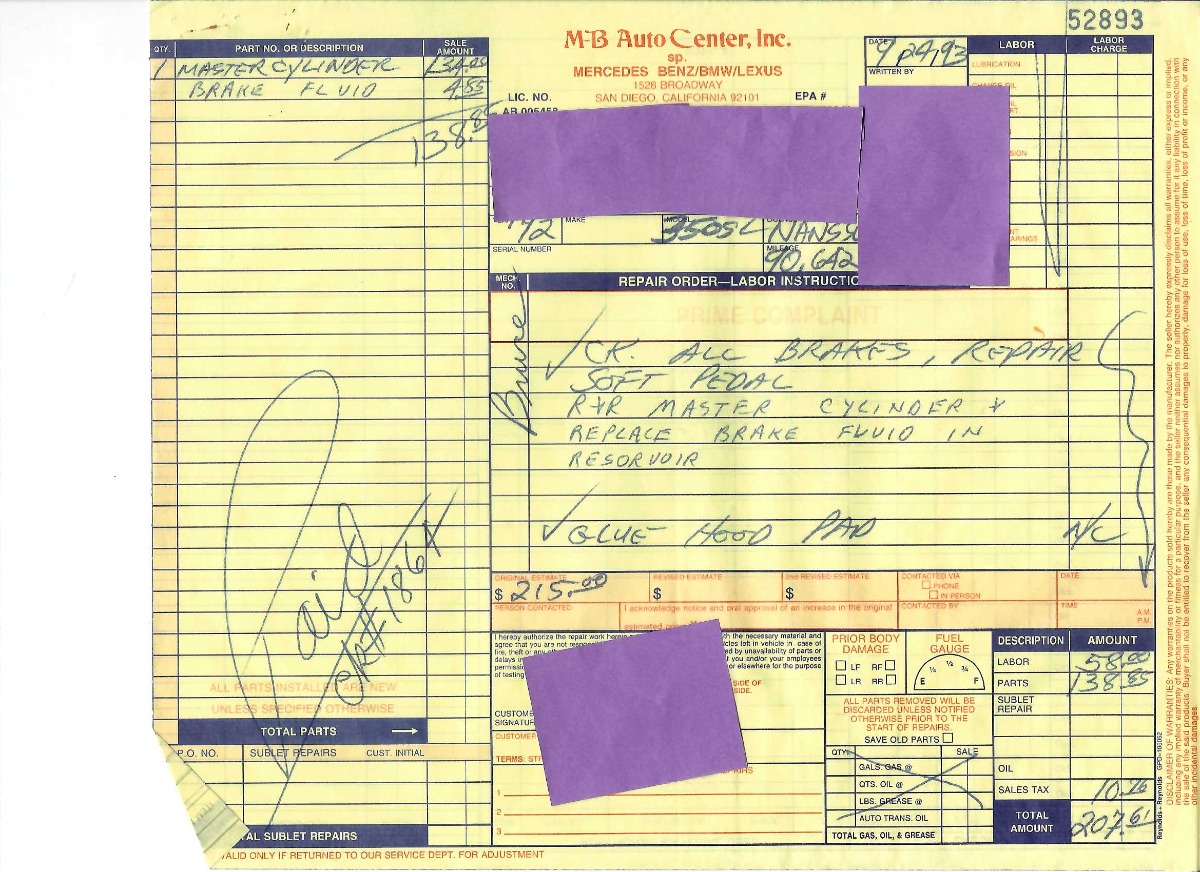 52893
M-B Auto Center, Inc.
sp.
MERCEDES BENZ/BMW/LEXUS
1528 BROADWAY
SAN DIEGO, CALIFORNIA 92101
LIC. NO.
EPA #
DATE 9 24, 93
WRITTEN BY
QTY. PART NO. OR DESCRIPTION SALE AMOUNT
1 MASTER CYLINDER
BRAKE FLUID 4.85
138.85
LABOR LABOR CHARGE
LUBRICATION
MAKE MODEL 350SL
SERIAL NUMBER
MILEAGE
90,642
MECH. NO. REPAIR ORDER—LABOR INSTRUCTIO
PRIME COMPLAINT
Bruce
✓ CK. ALL BRAKES, REPAIR
SOFT PEDAL
R+R MASTER CYLINDER +
REPLACE BRAKE FLUID IN
RESORVOIR
✓ GLUE HOOD PAD N/C
ORIGINAL ESTIMATE
$ 215.00
REVISED ESTIMATE
$
2nd REVISED ESTIMATE
$
CONTACTED VIA
PHONE
IN PERSON
DATE
PERSON CONTACTED
I acknowledge notice and oral approval of an increase in the original
estimated
CONTACTED BY
TIME
A.M.
P.M.
Paid
CK# 1864
ALL PARTS INSTALLED ARE NEW
UNLESS SPECIFIED OTHERWISE
TOTAL PARTS
P.O. NO. SUBLET REPAIRS CUST. INITIAL
TAL SUBLET REPAIRS
VALID ONLY IF RETURNED TO OUR SERVICE DEPT. FOR ADJUSTMENT
I hereby authorize the repair work
the necessary material and
agree that you are not
left in vehicle in case of
fire, theft or
by unavailability of parts or
delays
you and/or your employees
or elsewhere for the purpose
of testing
SIDE OF
SIDE.
CUSTOME
SIGNATUR
CUSTOMER
TERMS:
1
2
3
PRIOR BODY DAMAGE
LF RF
LR RR
FUEL GAUGE
E ¼ ½ ¾ F
ALL PARTS REMOVED WILL BE
DISCARDED UNLESS NOTIFIED
OTHERWISE PRIOR TO THE
START OF REPAIRS.
SAVE OLD PARTS
QTY. SALE
GALS. GAS @
QTS. OIL @
LBS. GREASE @
AUTO TRANS. OIL
TOTAL GAS, OIL, & GREASE
DESCRIPTION AMOUNT
LABOR 58.00
PARTS 138.85
SUBLET REPAIR
OIL
SALES TAX 10.76
TOTAL AMOUNT 207.61
Reynolds + Reynolds
DISCLAIMER OF WARRANTIES: Any warranties on the products sold hereby are those made by the manufacturer. The seller hereby expressly disclaims all warranties, either express or implied,
including any implied warranty of merchantability or fitness for a particular purpose, and the seller neither assumes nor authorizes any other person to assume for it any liability in connection with
the sale of the said products. Buyer shall not be entitled to recover from the seller any consequential damages to property, damage for loss of use, loss of time, loss of profit or income, or any
other incidental damages